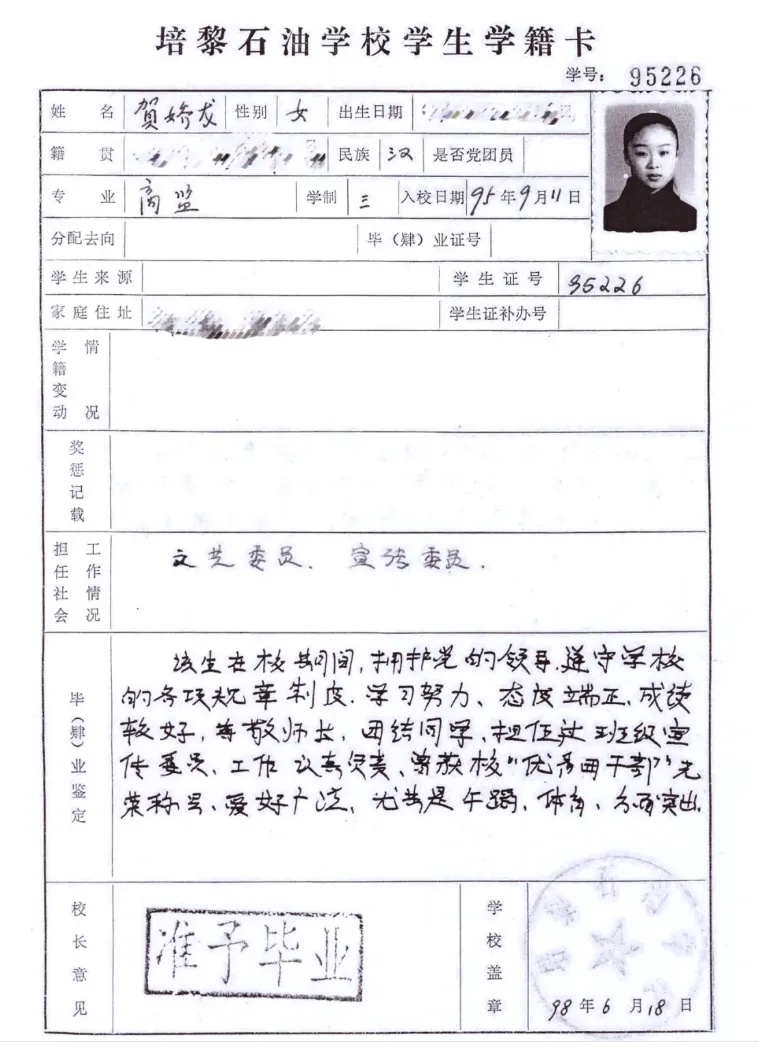 培黎石油学校学生学籍卡
学号: 95226
姓名 贺娇龙 性别 女 出生日期
籍贯 民族 汉 是否党团员
专业 商监 学制 三 入校日期 95年9月11日
分配去向 毕（肄）业证号
学生来源 学生证号 95226
家庭住址 学生证补办号
学籍变动情况
奖惩记载
担任社会工作情况 文艺委员、宣传委员.
毕（肄）业鉴定
该生在校期间,拥护党的领导.遵守学校
的各项规章制度.学习努力、态度端正,成绩
较好,尊敬师长,团结同学,担任过班级宣
传委员、工作认真负责、曾获校"优秀团干部"光
荣称号、爱好广泛,尤其是午蹈、体育、方面突出.
校长意见 准予毕业 学校盖章
98年6月18日